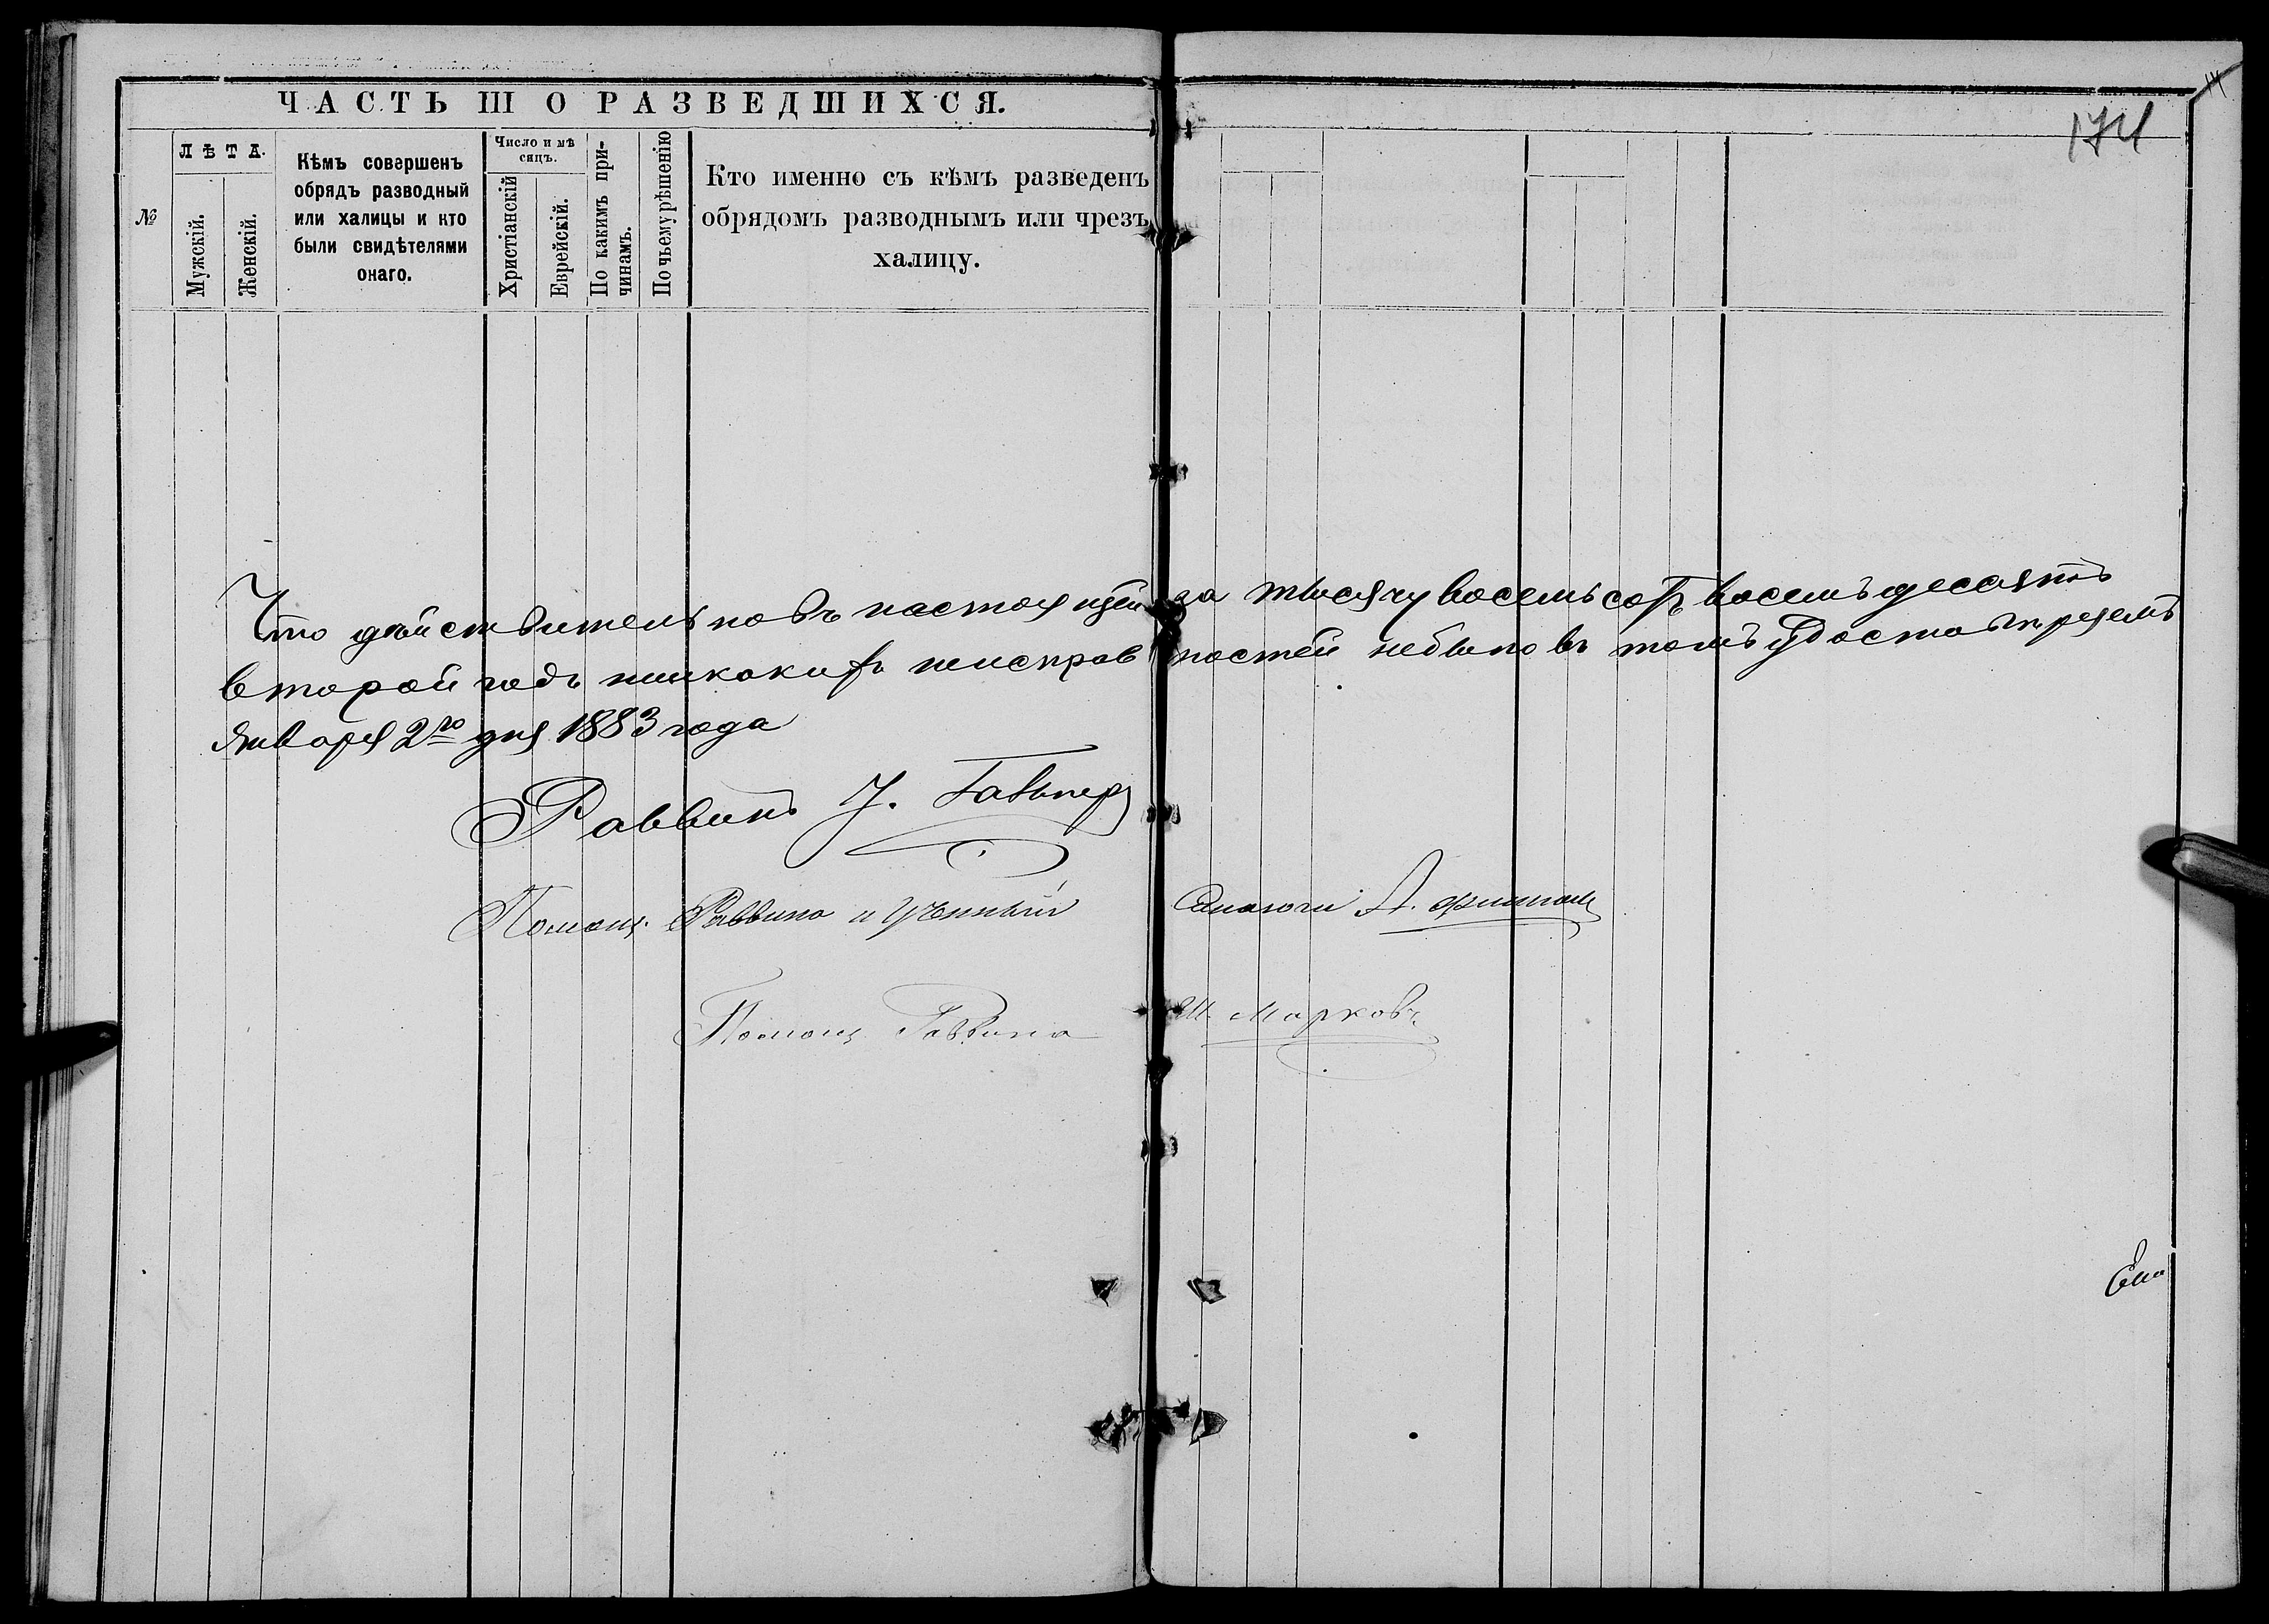 ЧАСТЬ III О РАЗВЕДШИХСЯ.
№
ЛѢТА.
Мужскій.
Женскій.
Кѣмъ совершенъ
обрядъ разводный
или халицы и кто
были свидѣтелями
онаго.
Число и мѣ
сяцъ.
Христіанскій
Еврейскій.
По какимъ при-
чинамъ.
По чьему рѣшенію
Кто именно съ кѣмъ разведенъ
обрядомъ разводнымъ или чрезъ
халицу.
174
Что дѣйствительно въ настоящей за тысячу восемьсотъ восемьдесятъ
второй годъ никакихъ неисправностей небыло въ томъ удостовѣряемъ
Января 2го дня 1883 года
Раввинъ
Помощ. Раввина и Ученный А.
Помощ Раввина Ш. Марковъ